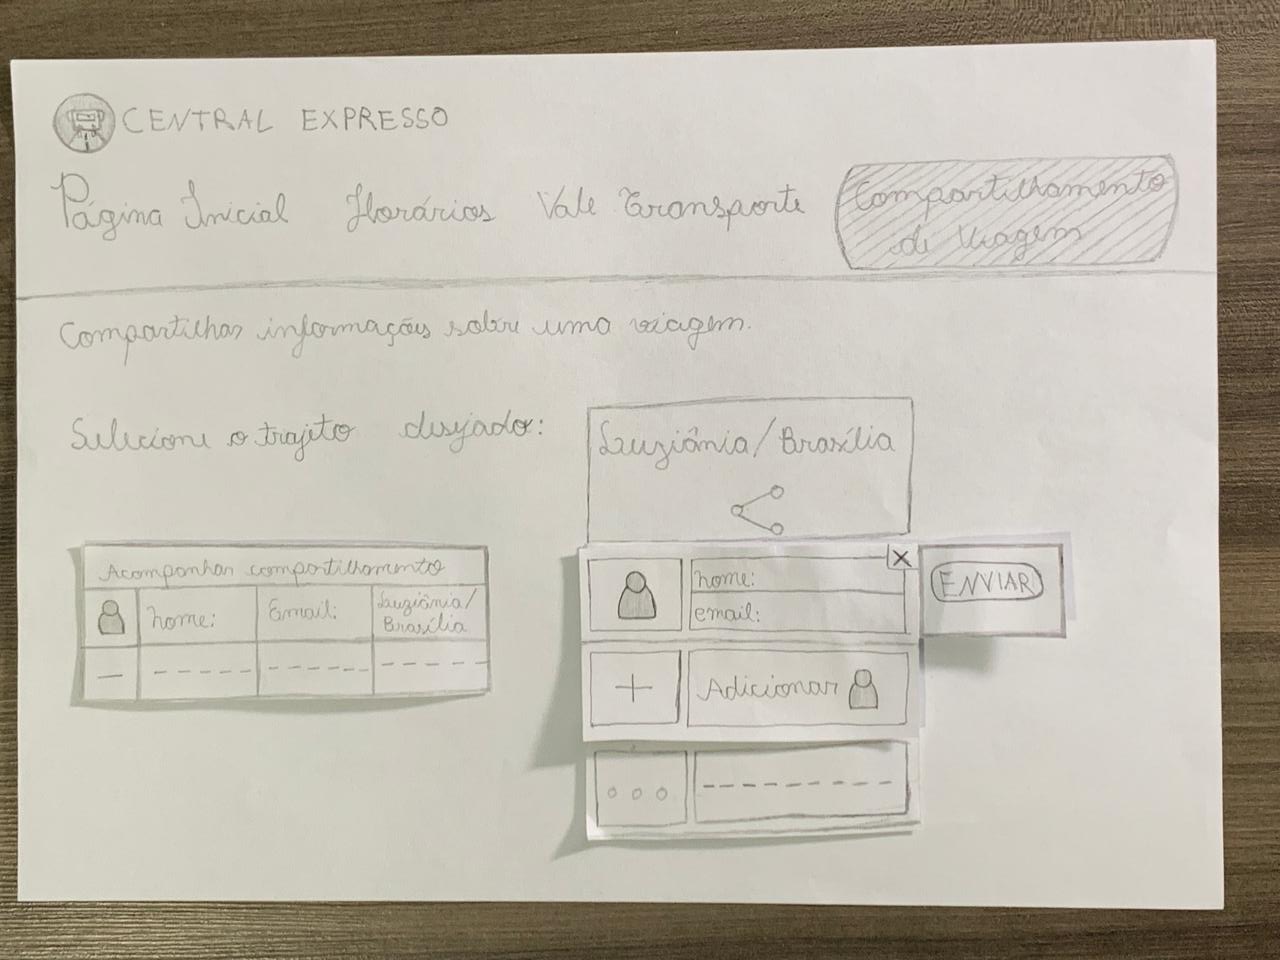 CENTRAL EXPRESSO
Página Inicial Horários Vale Transporte Compartilhamento
de Viagem
Compartilhar informações sobre uma viagem.
Selecione o trajeto desejado:
Luziânia/Brasília
Acompanhar compartilhamento
nome: Email: Luziânia/
Brasília
X
nome:
email:
ENVIAR
+ Adicionar